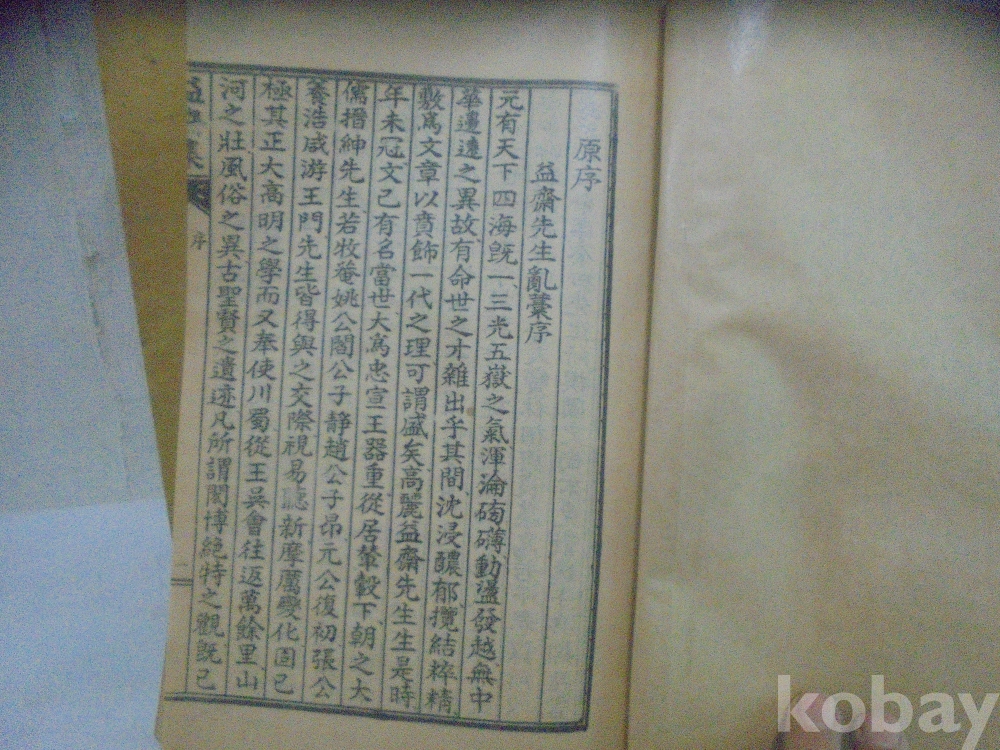 原序
益齋先生亂藁序
元有天下四海旣一三光五嶽之氣渾淪磅礴動盪發越無中
華邊遠之異故有命世之才雜出乎其間沈浸醲郁攬結粹精
敷爲文章以賁飾一代之理可謂盛矣高麗益齋先生生是時
年未冠文已有名當世大爲忠宣王器重從居輦轂下朝之大
儒搢紳先生若牧菴姚公閻公子靜趙公子昂元公復初張公
養浩咸游王門先生皆得與之交際視易聽新摩厲變化固已
極其正大高明之學而又奉使川蜀從王吳會往返萬餘里山
河之壯風俗之異古聖賢之遺迹凡所謂閎博絶特之觀旣已
益齋集
序
kobay